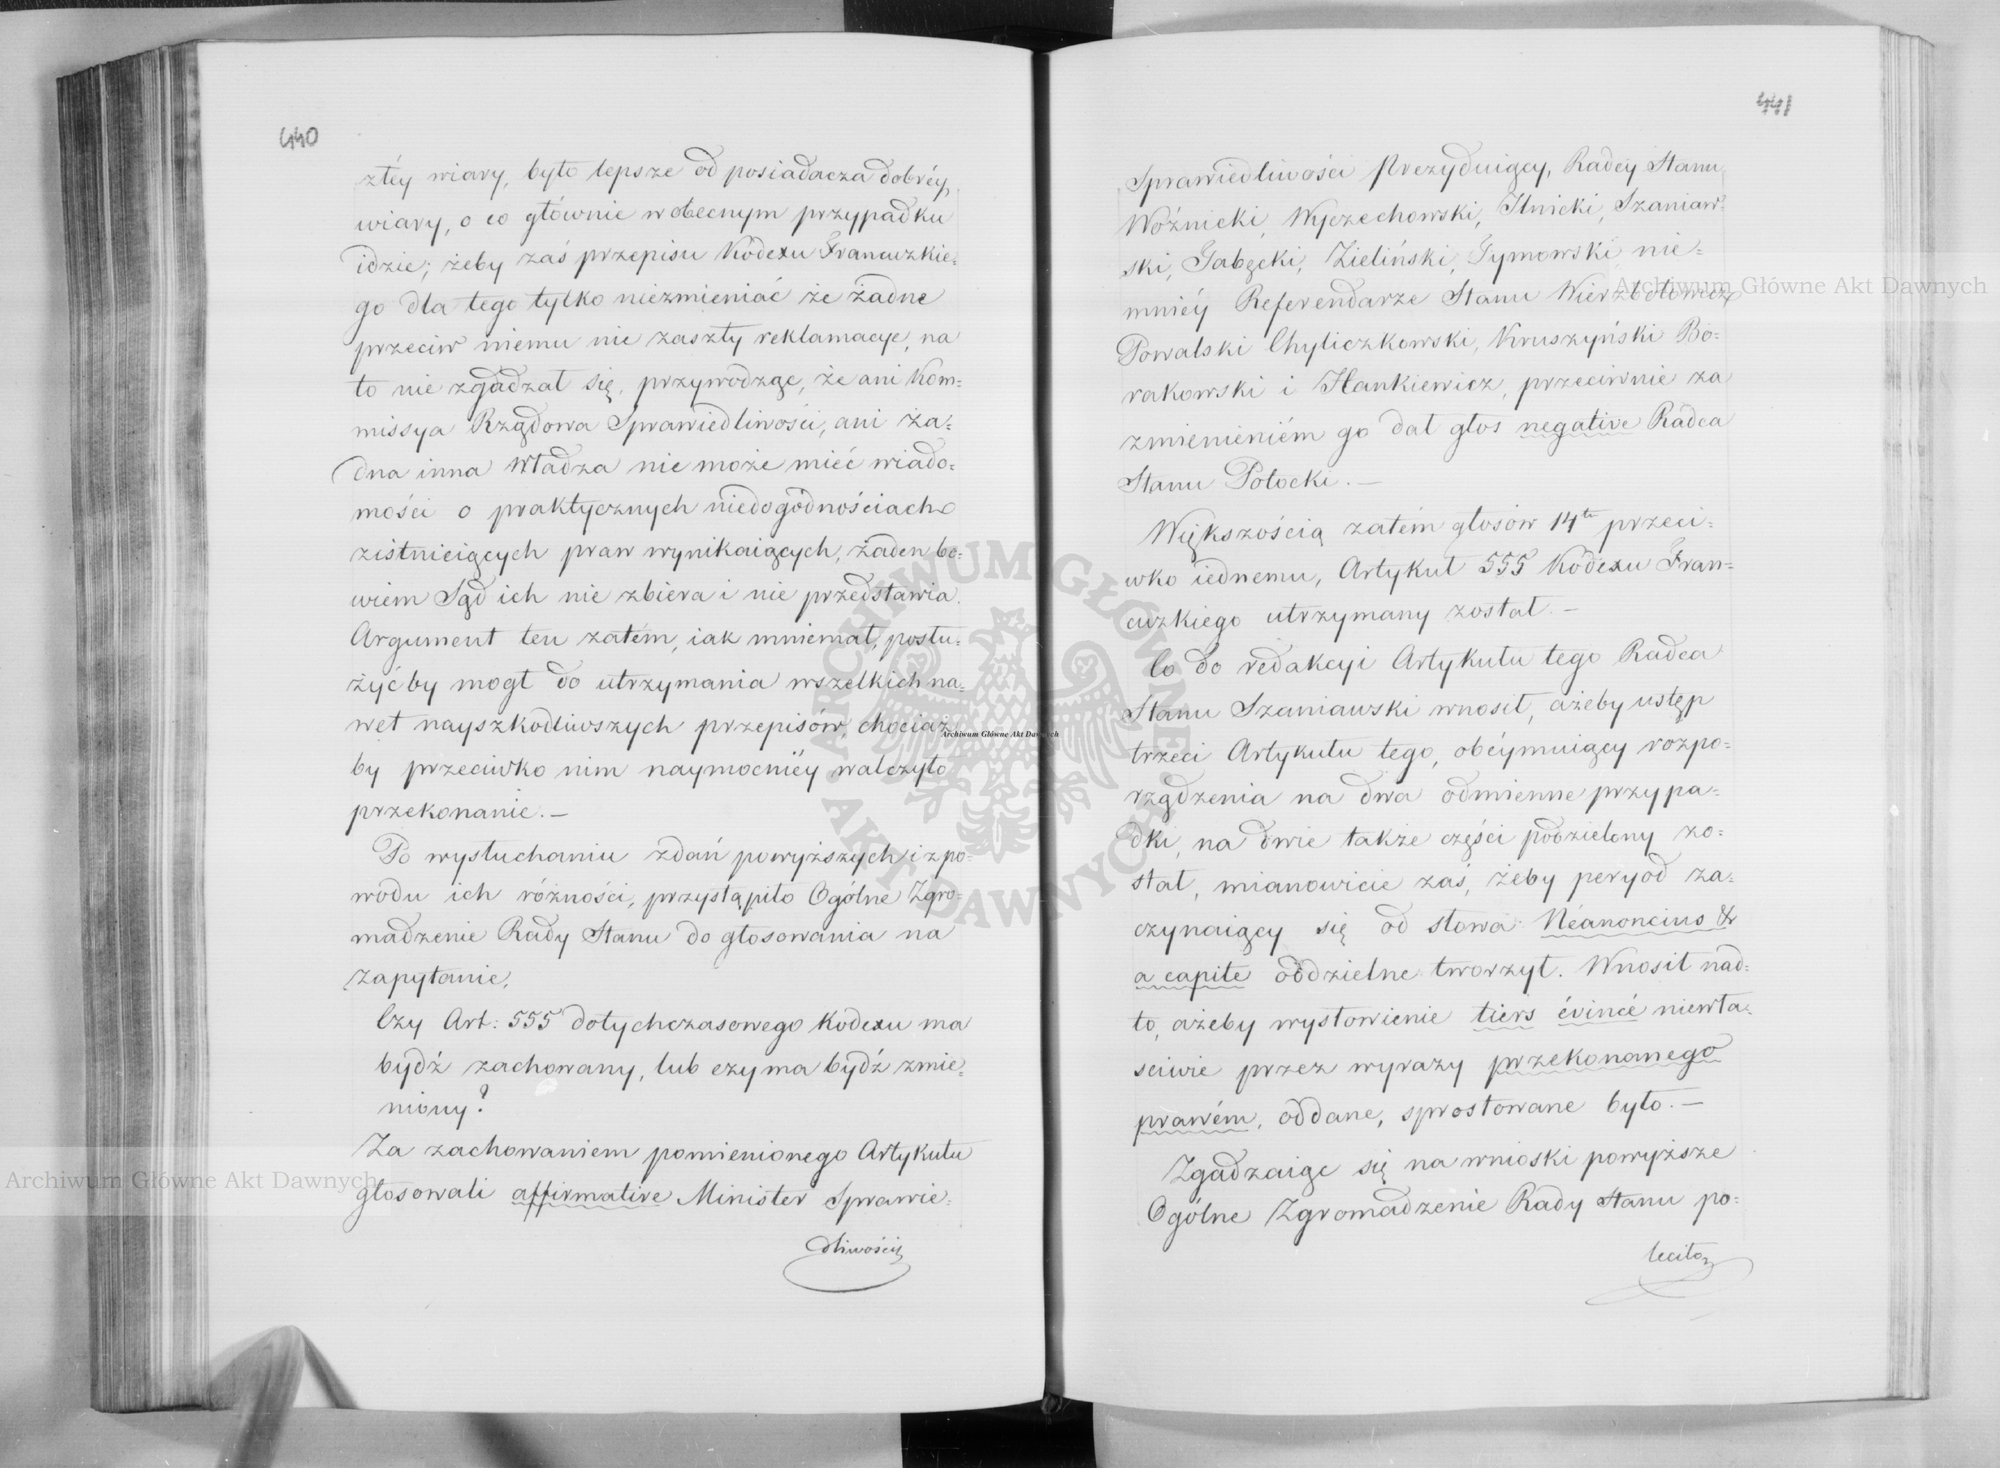 440
złéy wiary, było lepsze od posiadacza dobréy
wiary, o co głównie w obecnym przypadku
idzie; żeby zaś przepisu Kodexu Francuzkie=
go dla tego tylko niezmieniać że żadne
przeciw niemu nie zaszły reklamacye, na
to nie zgadzał się, przywodząc, że ani Kom=
missya Rządowa Sprawiedliwości, ani ża=
dna inna Władza nie może mieć wiado=
mości o praktycznych niedogodnościach
z istnieiących praw wynikaiących, żaden bo=
wiem Sąd ich nie zbiera i nie przedstawia.
Argument ten zatém, iak mniemał, posłu=
żyć by mogł do utrzymania wszelkich na=
wet nayszkodliwszych przepisów, chociaż
by przeciwko nim naymocniéy walczyło
przekonanie.—
Po wysłuchaniu zdań powyższych i z po=
wodu ich różności, przystąpiło Ogólne Zgro=
madzenie Rady Stanu do głosowania na
zapytanie,
Czy Art: 555 dotychczasowego Kodexu ma
bydź zachowany, lub czy ma bydź zmie=
niony?
Za zachowaniem pomienionego Artykułu
głosowali affirmative Minister Sprawie=
dliwości
441
Sprawiedliwości Prezyduiący, Radcy Stanu
Woźnicki, Wyczechowski, Ilnicki, Szaniaw=
ski, Gabęcki, Zieliński, Tymowski, nie=
mniéy Referendarze Stanu Wierzbołowicz
Powalski Chyliczkowski, Kruszyński Bo=
rakowski i Hankiewicz, przeciwnie za
zmienieniém go dał głos negative Radca
Stanu Potocki.—
Większością zatém głosów 14tu przeci=
wko iednemu, Artykuł 555 Kodexu Fran=
cuzkiego utrzymany został.—
Co do redakcyi Artykułu tego Radca
Stanu Szaniawski wnosił, ażeby ustęp
trzeci Artykułu tego, obéymuiący rozpo=
rządzenia na dwa odmienne przypa=
dki, na dwie także części podzielony zo=
stał, mianowicie zaś, żeby peryod za=
czynaiący się od słowa Néanoncius &
a capite oddzielne tworzył. Wnosił nad=
to, ażeby wysłowienie tiers évincé niewła=
ściwie przez wyrazy przekonanego
prawém, oddane, sprostowane było.—
Zgadzaiąc się na wnioski powyższe
Ogólne Zgromadzenie Rady Stanu po=
leciło
ARCHIWUM GŁÓWNE AKT DAWNYCH
Archiwum Główne Akt Dawnych
Archiwum Główne Akt Dawnych
Archiwum Główne Akt Dawnych